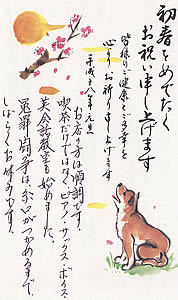 初春をめでたく
お祝い申し上げます
皆様のご健康とご多幸を
心よりお祈り申し上げます
平成十八年 元旦
お店の方は順調です。
喫茶だけではなく、ピアノ・サックス・ボーカス
英会話教室も始めました。
冤罪闘争は、ボロがつかめるまで、
しばらくお休みです。